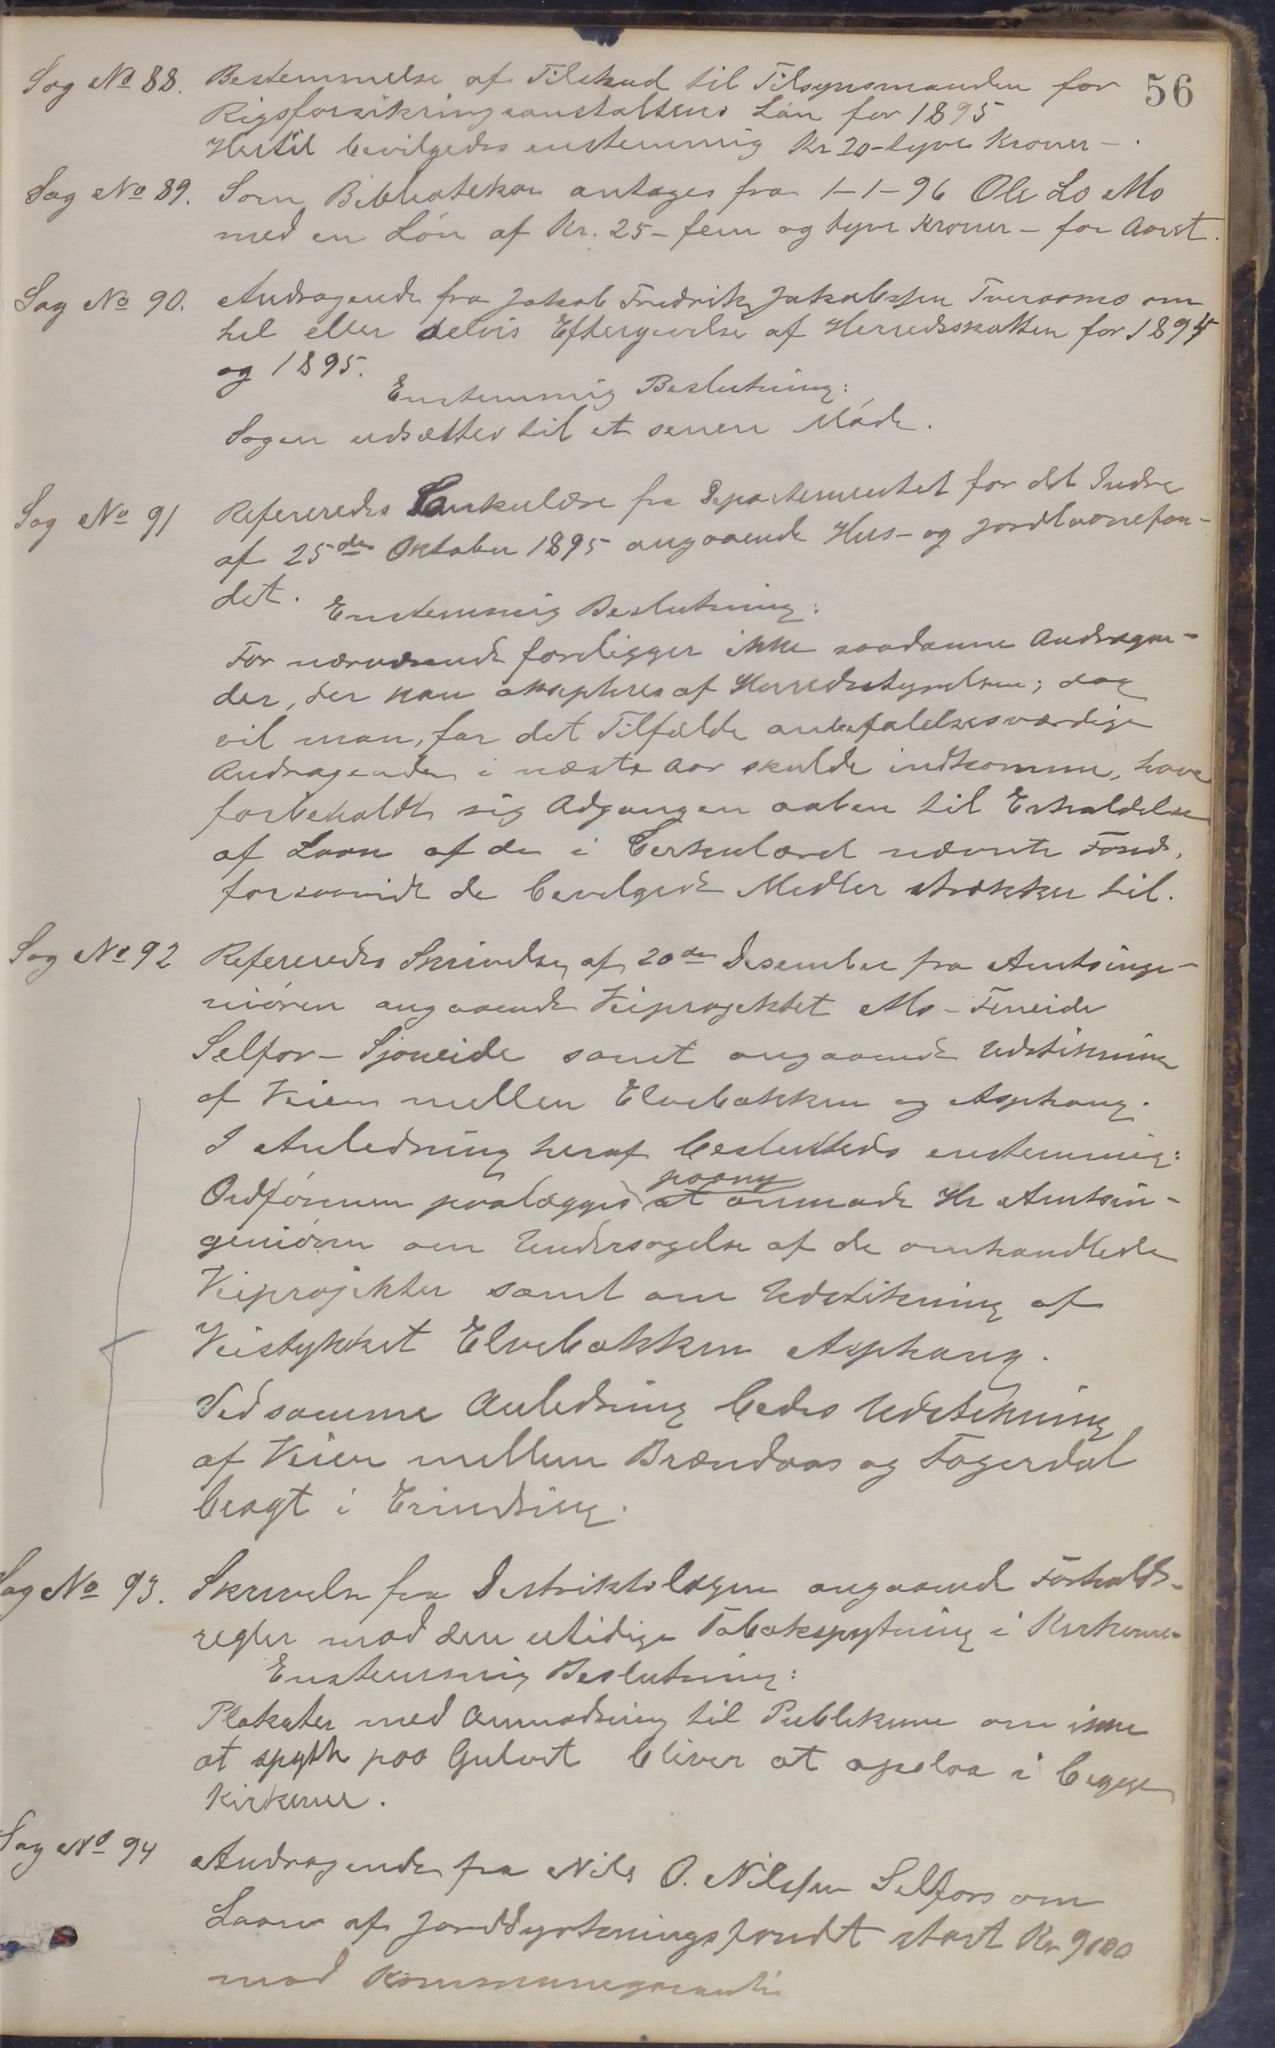 56
Sag No 88. Bestemmelse af Tilskud til Tilsynsmanden for
Rigsforsikringsanstaltens Løn for 1895
Hertil bevilgedes enstemmig Kr 20 - tyve Kroner - .
Sag No 89. Som Bibliotekar antages fra 1-1-96 Ole Lo Mo
med en Løn af Kr. 25 - fem og tyve Kroner - for Aaret.
Sag No 90. Andragende fra Jakob Fredrik Jakobsen Tveraamo om
hel eller delvis Eftergivelse af Herredsskatten for 1894
og 1895.
Enstemmig Beslutning:
Sagen udsættes til et senere Møde.
Sag No 91 Refereredes Cirkulære fra Departementet for det Indre
af 25de Oktober 1895 angaaende Hus- og Jordlaanefon-
det.
Enstemmig Beslutning:
For nærværende foreligger ikke saadanne Andragen-
der, der kan aksepteres af Herredsstyrelsen; dog
vil man, for det Tilfælde anbefalelsesværdige
Andragender i næste Aar skulde indkomme, have
forbeholdt sig Adgangen aaben til Erholdelse
af Laan af de i Cirkulæret nævnte Fond,
forsaavidt de bevilgede Midler strækker til.
Sag No 92 Refereredes Skrivelse af 20de Desember fra Amtsinge-
niøren angaaende Veiprojektet Mo - Fineide
Selfor - Sjoneide samt angaaende Udstikning
af Veien mellem Elvebakken og Asphaug.
I Anledning heraf besluttedes enstemmig:
Ordføreren paalægges paany at anmode Hr Amtsin-
geniøren om Undersøgelse af de omhandlede
Veiprojekter samt om Udstikning af
Veistykket Elvebakken Asphaug.
Ved samme Anledning bedes Udstikning
af Veien mellem Brændaas og Fagerdal
bragt i Erindring.
Sag No 93. Skrivelse fra Distriktslægen angaaende Forholds-
regler mod den utidige Tobakspytning i Kirkerne
Enstemmig Beslutning:
Plakater med Anmodning til Publikum om ikke
at spytte paa Gulvet bliver at opslaa i begge
Kirkerne.
Sag No 94 Andragende fra Nils O. Nilssen Selfors om
Laan af Jorddyrkningsfondet stort Kr
mod Kommunegaranti